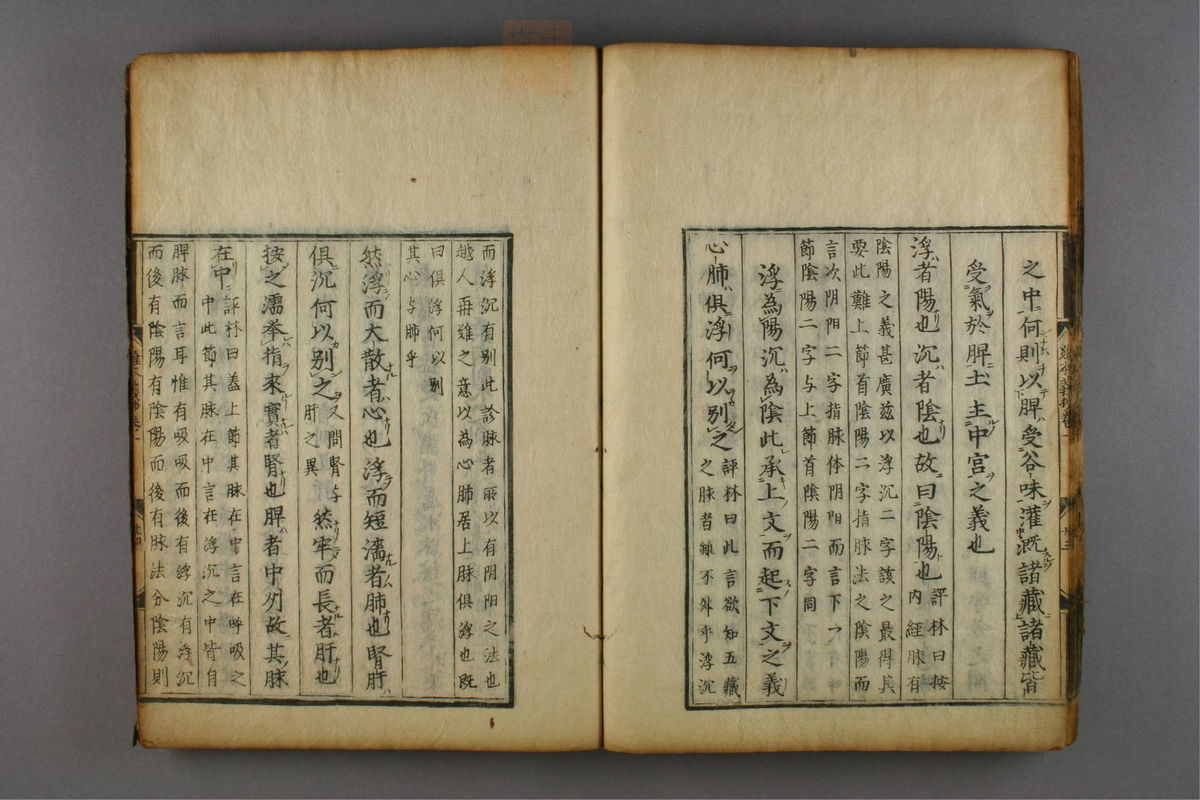 之中何則以脾受谷味灌溉諸藏諸藏皆
受氣於脾土主中宮之義也
浮者陽也沉者陰也故曰陰陽也
評林曰按
内經脉有
陰陽之義甚廣兹以浮沉二字該之最得其
要此難上節首陰陽二字指脉法之陰陽而
言次阴阳二字指脉体阴阳而言下一
節陰陽二字与上節首陰陽二字同
浮為陽沉為陰此承上文而起下文之義
心肺俱浮何以別之
評林曰此言欲知五藏
之脉者雖不外乎浮沉
而浮沉有别此診脉者所以有阴阳之法也
越人再难之意以為心肺居上脉俱浮也既
曰俱浮何以别
其心与肺乎
然浮而大散者心也浮而短濇者肺也腎肝
俱沉何以別之
又問腎与
肝之異
然牢而長者肝也
按之濡举指來實者腎也脾者中州故其脉
在中
評林曰蓋上節其脉在中言在呼吸之
中此節其脉在中言在浮沉之中皆自
脾脉而言耳惟有吸吸而後有浮沉有浮沉
而後有陰陽有陰陽而後有脉法分陰陽則